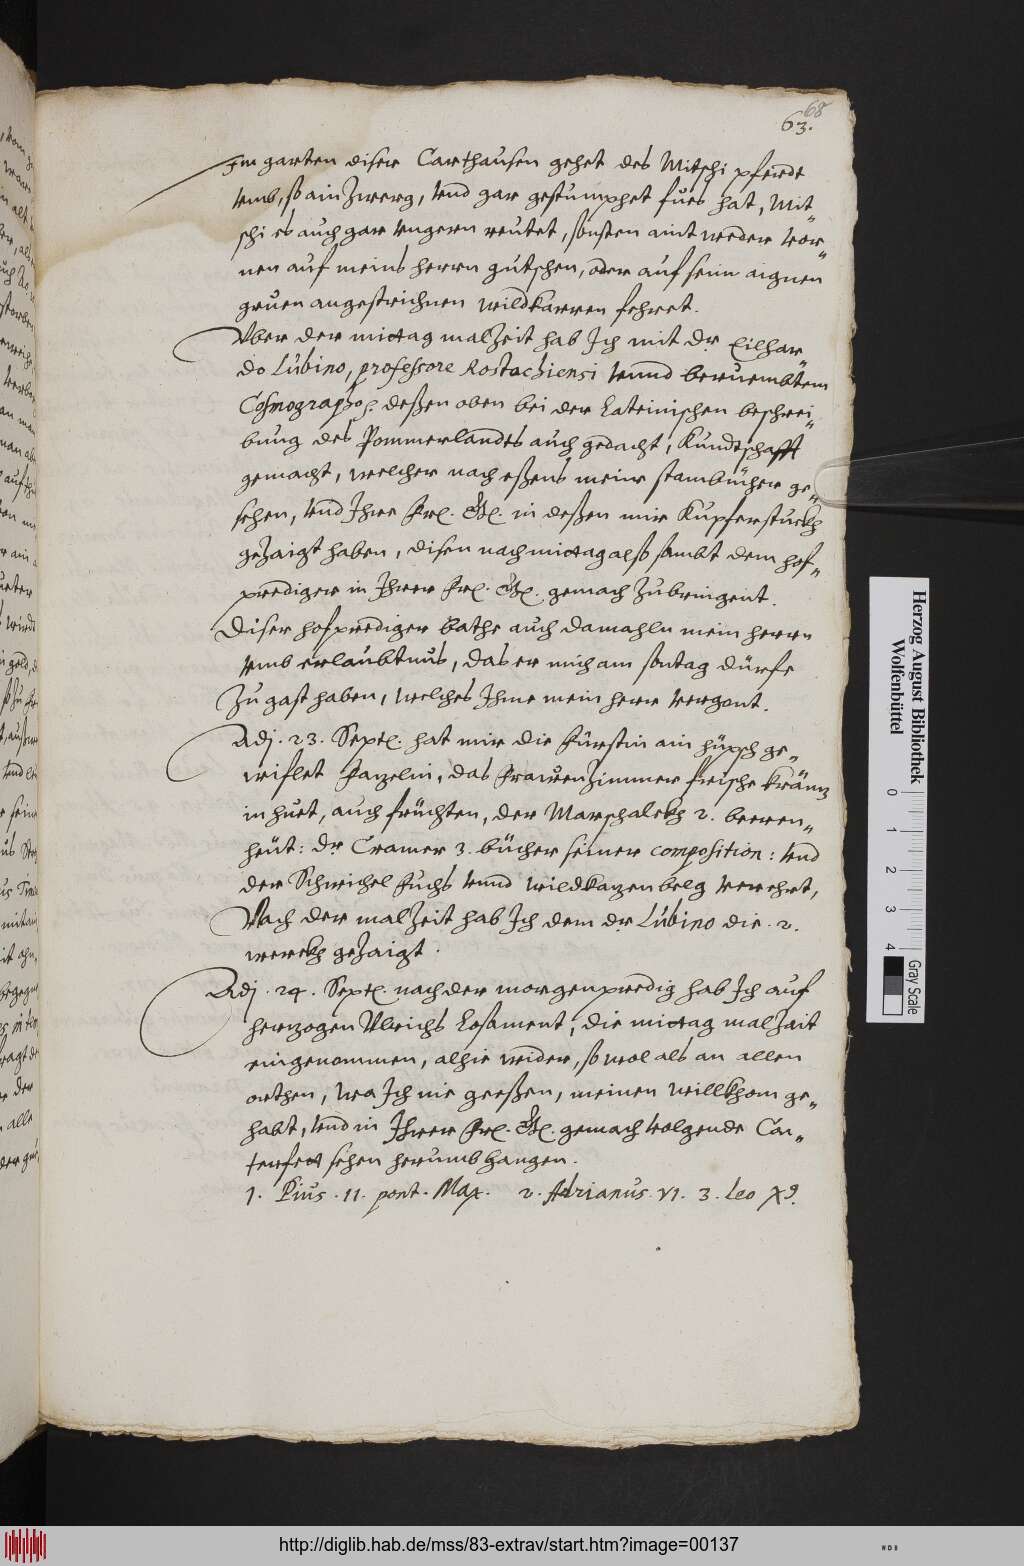 68
63.
Im garten diser Carthausen gehet des Mitschi pferdt
vmb, so ain zwerg, vnd gar gestumphet fues hat, Mit„
schi es auch gar vngern reutet, sonsten aint weder vor„
nen auf meins herrn gutschen, oder auf seim aignen
gruen angestrichnen wildkarren fehret.
Vber der mittag malzeit hab Ich mit Dr. Eilhar„
do Lubino, professore Rostochiensi vnnd beruembtem
Cosmographo, deßen oben bei der Lateinischen beschrei„
bung des Pommerlandts auch gedacht, Kundtschafft
gemacht, welcher nach eßens meine stambücher ge„
sehen, vnd Ihre Frl. Gl. in deßen mir Kupferstuckh
gezaigt haben, disen nachmittag also sambt dem hof„
prediger in Ihrer Frl. Gl. gemach zubringent.
Diser hofprediger bathe auch damahln mein herrn
vmb erlaubtnus, das er mich am sontag dürfe
zu gast haben, welches Ihme mein herr vergont.
Adj. 23. Sept. hat mir die Fürstin ain hüpsch ge„
wiflet Fazelin, das Frauenzimmer frische kräntz
in huet, auch früchten, der Marschalckh 2. beeren„
heüt: Dr. Cramer 3. bücher seiner composition: vnd
der Schwichel Fuchs vnnd wildkazenbelg verehrt,
Nach der malzeit hab Ich dem dr. Lubino die .2.
werckh gezaigt.
Adj. 24. Sept. nach der morgenpredig hab Ich auf
herzogen Vlrichs Losament, die mittag malzait
eingenommen, alhie wider, so wol als an allen
orthen, wo Ich nie geeßen, meinen willkhom ge„
habt, vnd in Ihrer Frl. Gl. gemach volgende Con„
terfect sehen herumb hangen.
1. Pius .II. pont. Max. 2. Adrianus VI. 3. Leo X9.
Herzog August Bibliothek
Wolfenbüttel
0 1 2 3 4
Gray Scale
http://diglib.hab.de/mss/83-extrav/start.htm?image=00137